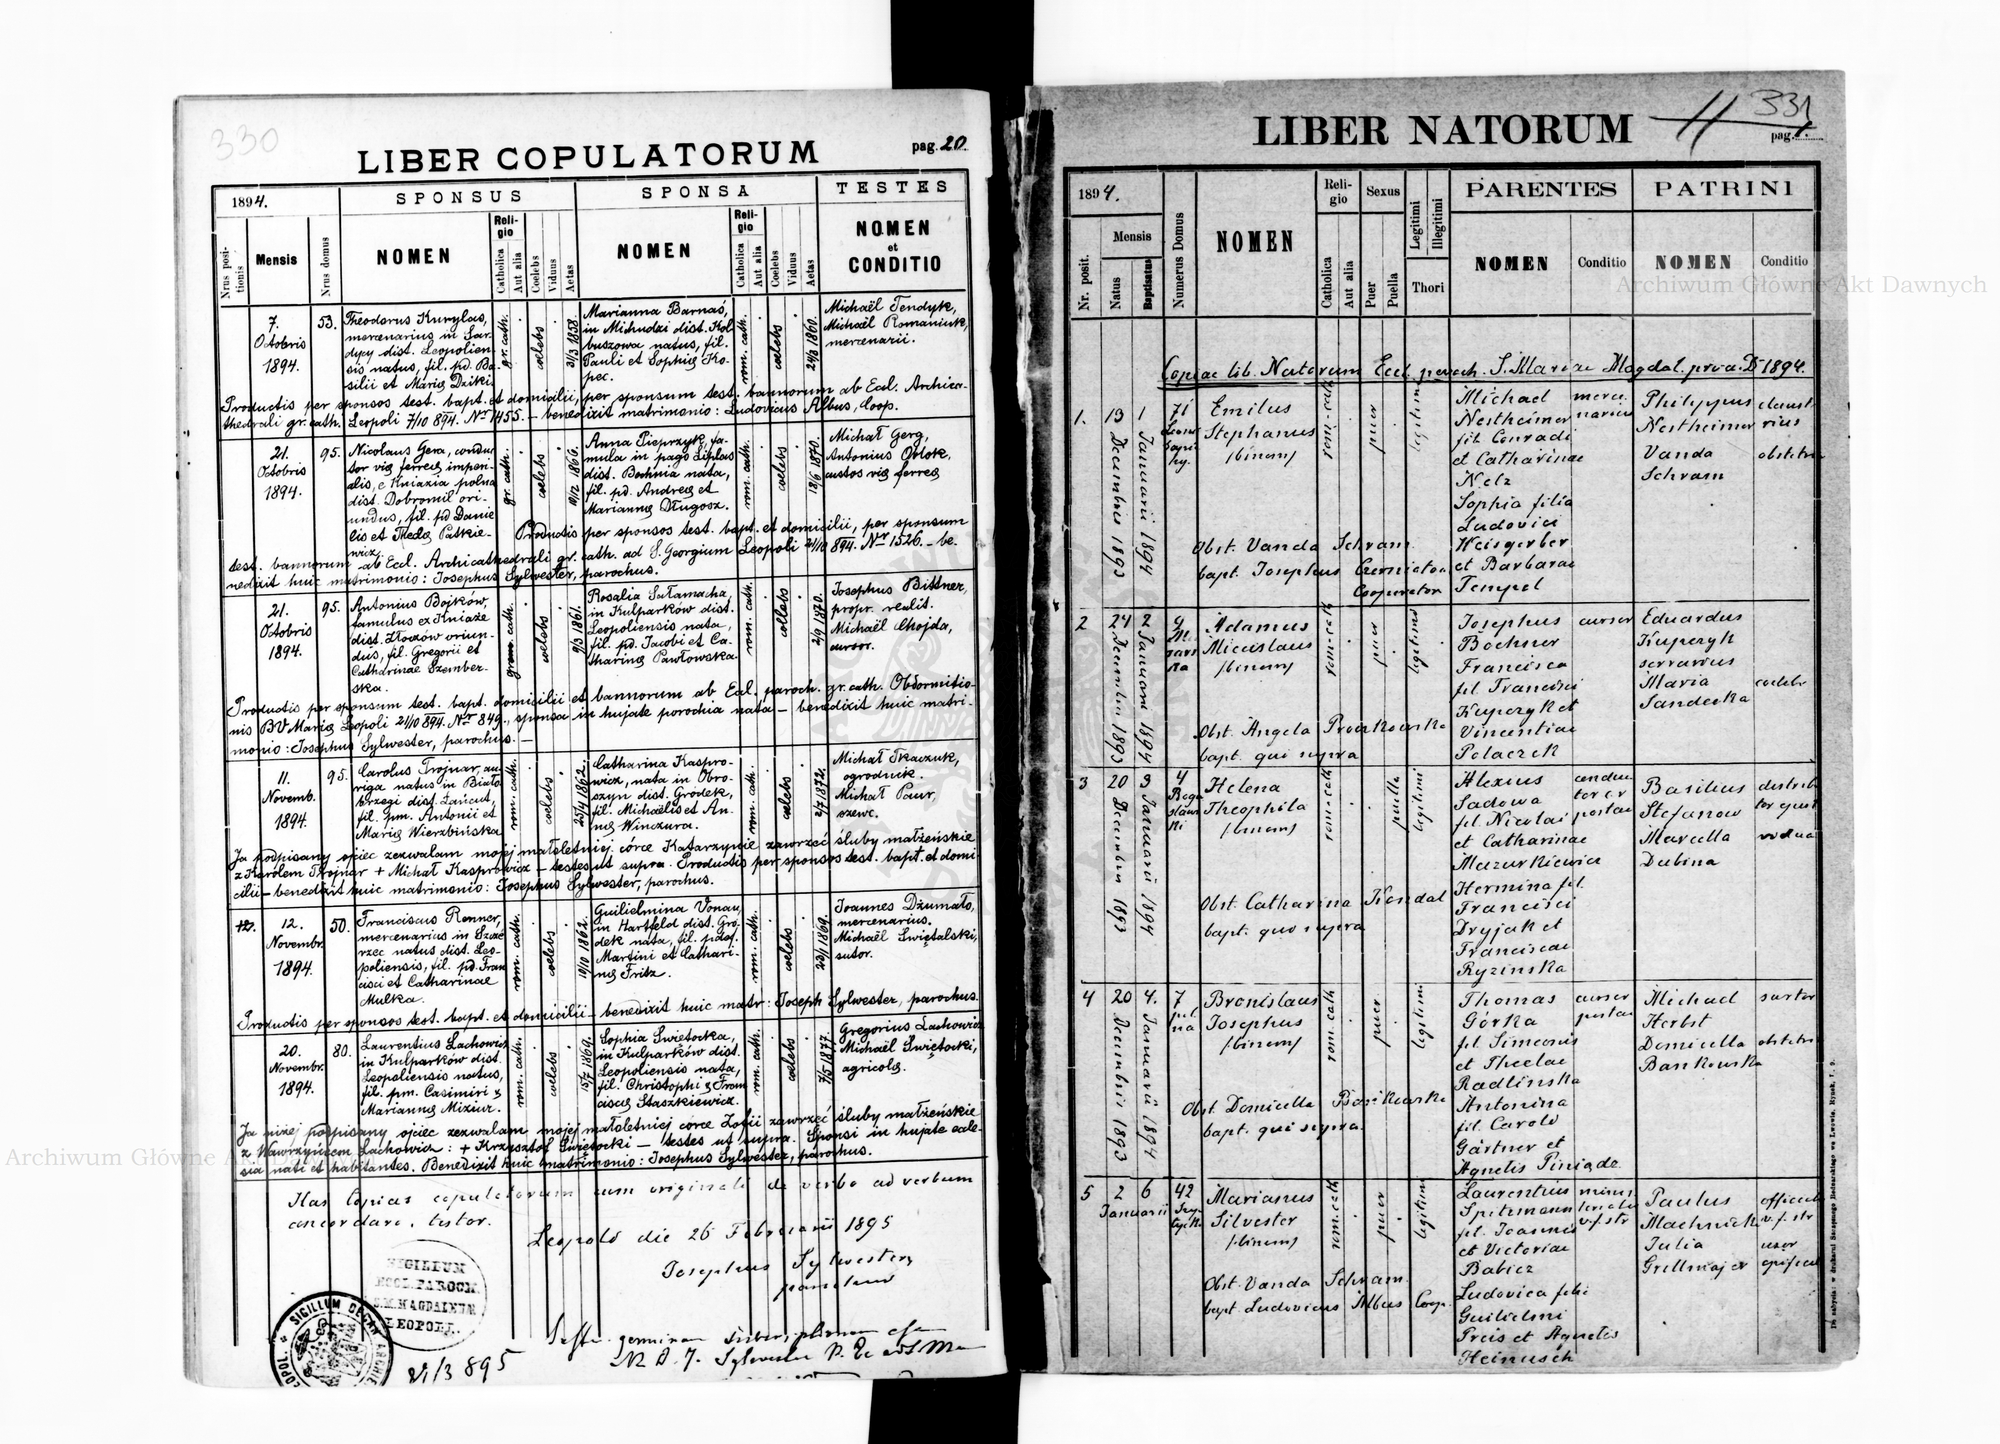 330
LIBER COPULATORUM
pag. 20.
1894.
SPONSUS
SPONSA
TESTES
Nrus positionis
Mensis
Nrus domus
NOMEN
Religio
Catholica
Aut alia
Coelebs
Viduus
Aetas
NOMEN
Religio
Catholica
Aut alia
Coelebs
Viduus
Aetas
NOMEN
et
CONDITIO
7.
Octobris
1894.
53.
Theodorus Kurylas,
mercenarius in Sar-
dycy dist. Leopolien-
sis natus, fil. pd. Ba-
silii et Mariæ Dziki.
gr. cath.
coelebs
31/3 1858.
Marianna Barnaś,
in Michudzi dist. Kol
buszowa natus, fil.
Pauli et Sophiæ Ko-
pec.
rom. cath.
coelebs
24/3 1860.
Michaël Tendyk,
Michaël Romaniuk,
mercenarii.
Productis per sponsos test. bapt. et domicilii, per sponsum test. bannorum ab Eccl. Archica-
thedrali gr. cath. Leopoli 7/10 894. Nr 1455. – benedixit matrimonio: Ludovicus Albus, Coop.
21.
Octobris
1894.
95.
Nicolaus Gera, conduc
tor viæ ferreæ imperi-
alis, e Kniazia polna
dist. Dobromil ori-
undus, fil. pd Danie
lis et Theclæ Patkie-
wicz.
gr. cath.
coelebs
Anna Pieprzyk, fa-
mula in pago Liplas
dist. Bochnia nata,
fil. pd. Andreæ et
Mariannæ Długosz.
rom. cath.
coelebs
18/6 1870.
Michał Gerg,
Antonius Orłok,
custos viæ ferreæ
Productis per sponsos test. bapt. et domicilii, per sponsum
test. bannorum ab Eccl. Archicathedrali gr. cath. ad S. Georgium Leopoli 21/10 894. Nr 1526. – be-
nedixit huic matrimonio: Josephus Sylwester, parochus.
21.
Octobris
1894.
95.
Antonius Bojków,
famulus ex Kniaże
dist. Złoczów oriun-
dus, fil. Gregorii et
Catharinae Szember-
ska.
coelebs
9/3 1861.
Rosalia Sałamacha,
in Kulparków dist.
Leopoliensis nata,
fil. pd. Jacobi et Ca-
tharinæ Pawłowska.
rom. cath.
coelebs
2/9 1870.
Josephus Bittner,
propr. realit.
Michaël Chojda,
cursor.
Productis per sponsum test. bapt. domicilii et bannorum ab Eccl. paroch. gr. cath. Obdormitio-
nis BV Mariæ Leopoli 21/10 894. Nr 849., sponsa in hujate parochia nata – benedixit huic matri-
monio: Josephus Sylwester, parochus.
11.
Novemb.
1894.
95.
Carolus Trojnar, au-
riga natus in Biało-
brzegi dist. Łańcut,
fil. pm. Antonii et
Mariæ Wierzbińska
rom. cath.
coelebs
25/4 1862.
Catharina Kaspro-
wicz, nata in Obro-
szyn dist. Gródek,
fil. Michaëlis et An-
næ Winczura.
rom. cath.
coelebs
2/7 1872.
Michał Tkaczuk,
ogrodnik.
Michał Paur,
szewc.
Ja podpisany ojciec zezwalam mojej małoletniej córce Katarzynie zawrzeć śluby małżeńskie
z Karolem Trojnar + Michał Kasprowicz – testes ut supra. Productis per sponsos test. bapt. et domi
cilii – benedixit huic matrimonio: Josephus Sylwester, parochus.
12.
Novembr.
1894.
50.
Franciscus Renner,
mercenarius in Szcze
rzec natus dist. Leo-
poliensis, fil. pd. Fran
cisci et Catharinae
Mulka.
rom. cath.
coelebs
19/10 1862.
Guilielmina Vonau,
in Hartfeld dist. Gró-
dek nata, fil. pdef.
Martini et Cathari-
næ Fritz.
rom. cath.
coelebs
23/1 1869.
Joannes Dżumało,
mercenarius.
Michaël Swiętalski,
sutor.
Productis per sponsos test. bapt. et domicilii – benedixit huic matr: Joseph Sylwester, parochus.
20.
Novembr.
1894.
80.
Laurentius Lachowicz
in Kulparków dist.
Leopoliensis natus,
fil. pm. Casimiri &
Mariannæ Miziur.
rom. cath.
coelebs
15/7 1869.
Sophia Swietocka,
in Kulparków dist.
Leopoliensis nata,
fil. Christophi & Fran
ciscæ Staszkiewicz.
rom. cath.
coelebs
7/5 1877.
Gregorius Lachowicz
Michaël Swiętocki,
agricolæ.
Ja niżej podpisany ojciec zezwalam mojej małoletniej córce Zofii zawrzeć śluby małżeńskie
z Wawrzyńcem Lachowicz: + Krzysztof Swiętocki – testes ut supra. Sponsi in hujate eccle-
sia nati et habitantes. Benedixit huic matrimonio: Josephus Sylwester, parochus.
Has Copias copulatorum cum originali de verbo ad verbum
concordare, testor.
Leopoli die 26 Februarii 1895
Josephus Sylwester,
SIGILLUM
ECCL. PAROCH.
S. M. MAGDALENÆ
LEOPOLI.
SIGILLUM DECAN
895
331
LIBER NATORUM
pag. 1.
1894.
Nr. posit.
Mensis
Natus
Baptisatus
Numerus Domus
NOMEN
Religio
Catholica
Aut alia
Sexus
Puer
Puella
Legitimi
Illegitimi
Thori
PARENTES
NOMEN
Conditio
PATRINI
NOMEN
Conditio
Copiae lib. Natorum Eccl. paroch. S. Mariae Magdal. pro a. D 1894.
1.
13
Decembris 1893
1
Januarii 1894
71
Emilus
Stephanus
/binom/
rom-cath
puer
legitimi
Michael
Nestheimer
fil. Conradi
et Catharinae
Netz
Sophia filia
Ludovici
Weisgerber
et Barbarae
Tempel
merce
narius
Philippus
Nestheimer
Vanda
Schram
claust
rius
obstetri
Obst. Vanda Schram.
bapt. Josephus
Cooperator
2
24
Decembris 1893
2
Januarii 1894
9
Adamus
Miecislaus
/binom/
rom-cath
puer
legitimi
Josephus
Böchner
Francisca
fil. Francisci
Kupczyk et
Vincentiae
Polaczek
cursor
Eduardus
Kupczyk
serrarius
Maria
Sandecka
coelebs
Obst. Angela
bapt. qui supra
3
20
Decembris 1893
3
Januarii 1894
4
Helena
Theophila
/binom/
rom-cath
puella
legitimi
Alexius
Sadowa
fil. Nicolai
et Catharinae
Mazurkiewicz
Hermina fil.
Francisci
Dryjak et
Franciscae
Ryzinska
conduc
tor er
postae
Basilius
Stefanow
Marcella
Dubina
distribu
vidua
Obst. Catharina Kondal
bapt. qui supra
4
20
Decembris 1893
4.
Januarii 1894
7
Bronislaus
Josephus
/binom/
rom. cath
puer
legitimi
Thomas
Górka
fil. Simeonis
et Theclae
Radlinska
Antonina
fil. Caroli
Gärtner et
Agnetis Piniąde
cursor
postae
Michael
Herbst
Domicella
Bankowska
sartor
obstetri
Obst. Domicella
bapt. qui supra.
5
2
6
Januarii
42
Marianus
Silvester
/binom/
rom. cath
puer
legitimi
Laurentius
Spitzmann
fil. Joannis
et Victoriae
Babicz
Ludovica filia
Guilielmi
Preis et Agnetis
Heinusch
v.f. str
Paulus
Machnicki
Julia
Grellmajer
v.f. str
uxor
Obst. Vanda Schram.
bapt. Ludovicus Albus Coop.
Archiwum Główne Akt Dawnych
Archiwum Główne Akt Dawnych